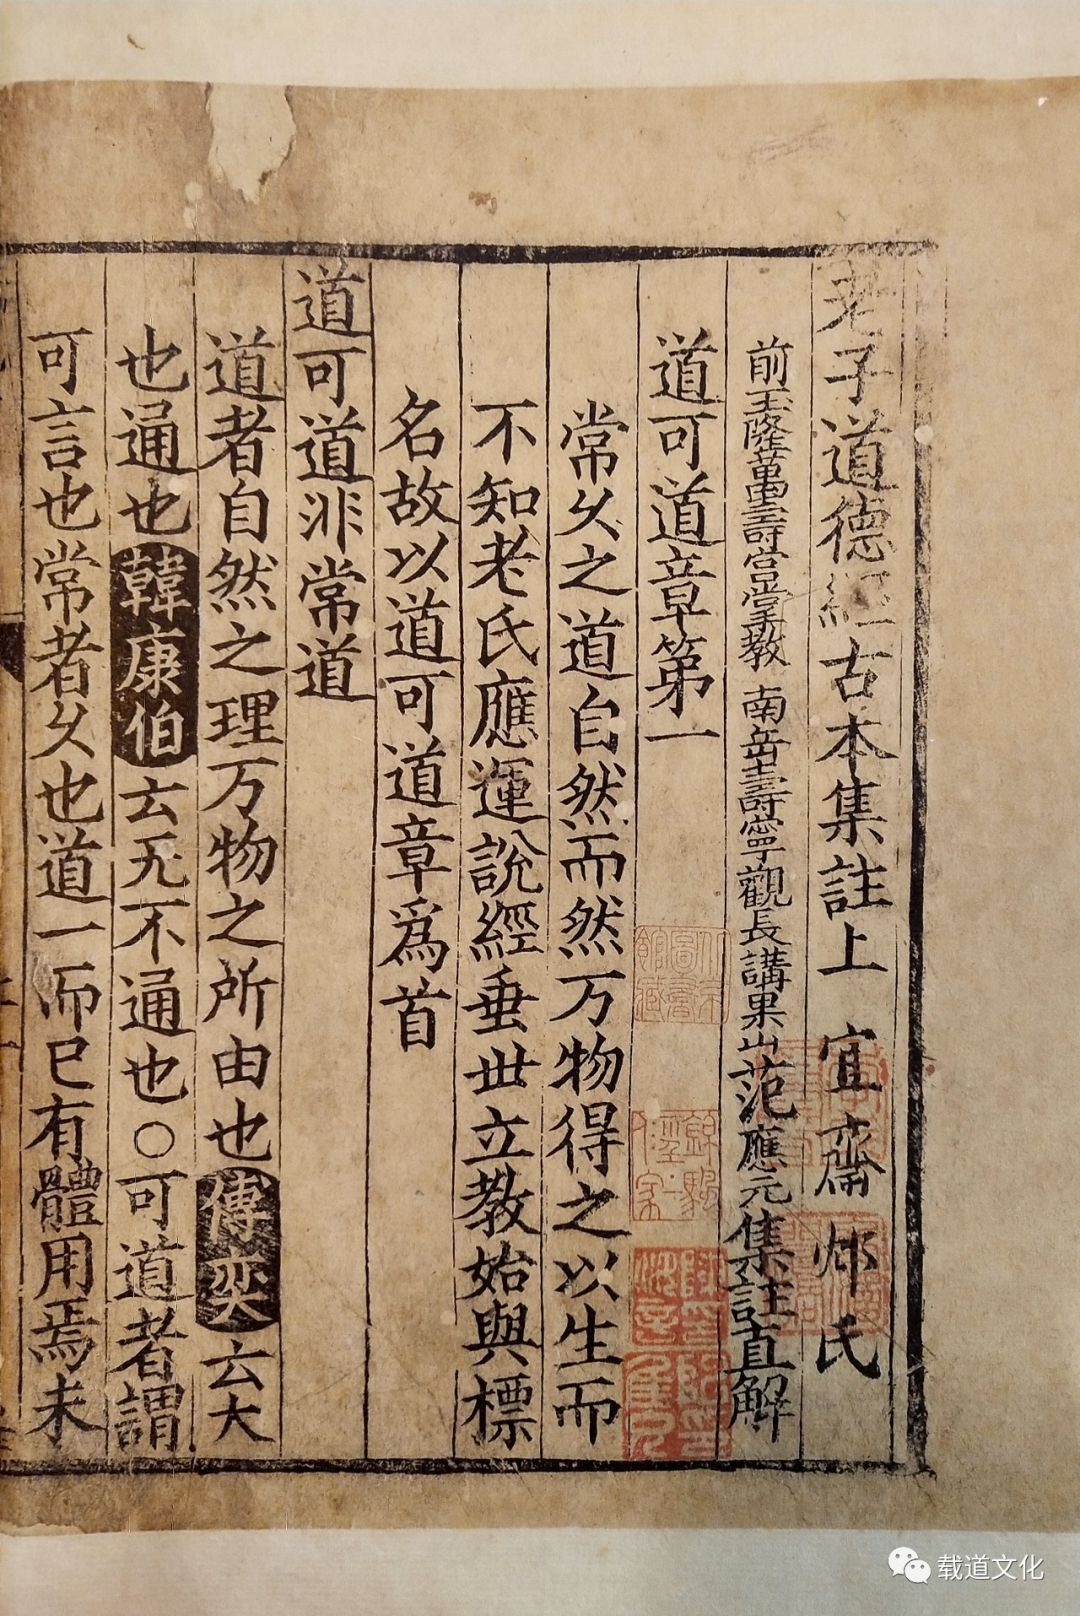 老子道德經古本集註上　宜齋　郷氏
前玉隆萬壽宮掌教　南岳壽寧觀長講果山范應元集註直解
道可道章第一
常久之道自然而然万物得之以生而
不知老氏應運說經垂世立教始與標
名故以道可道章爲首
道可道非常道
道者自然之理万物之所由也傅奕云大
也通也韓康伯云无不通也○可道者謂
可言也常者久也道一而已有體用焉未
载道文化